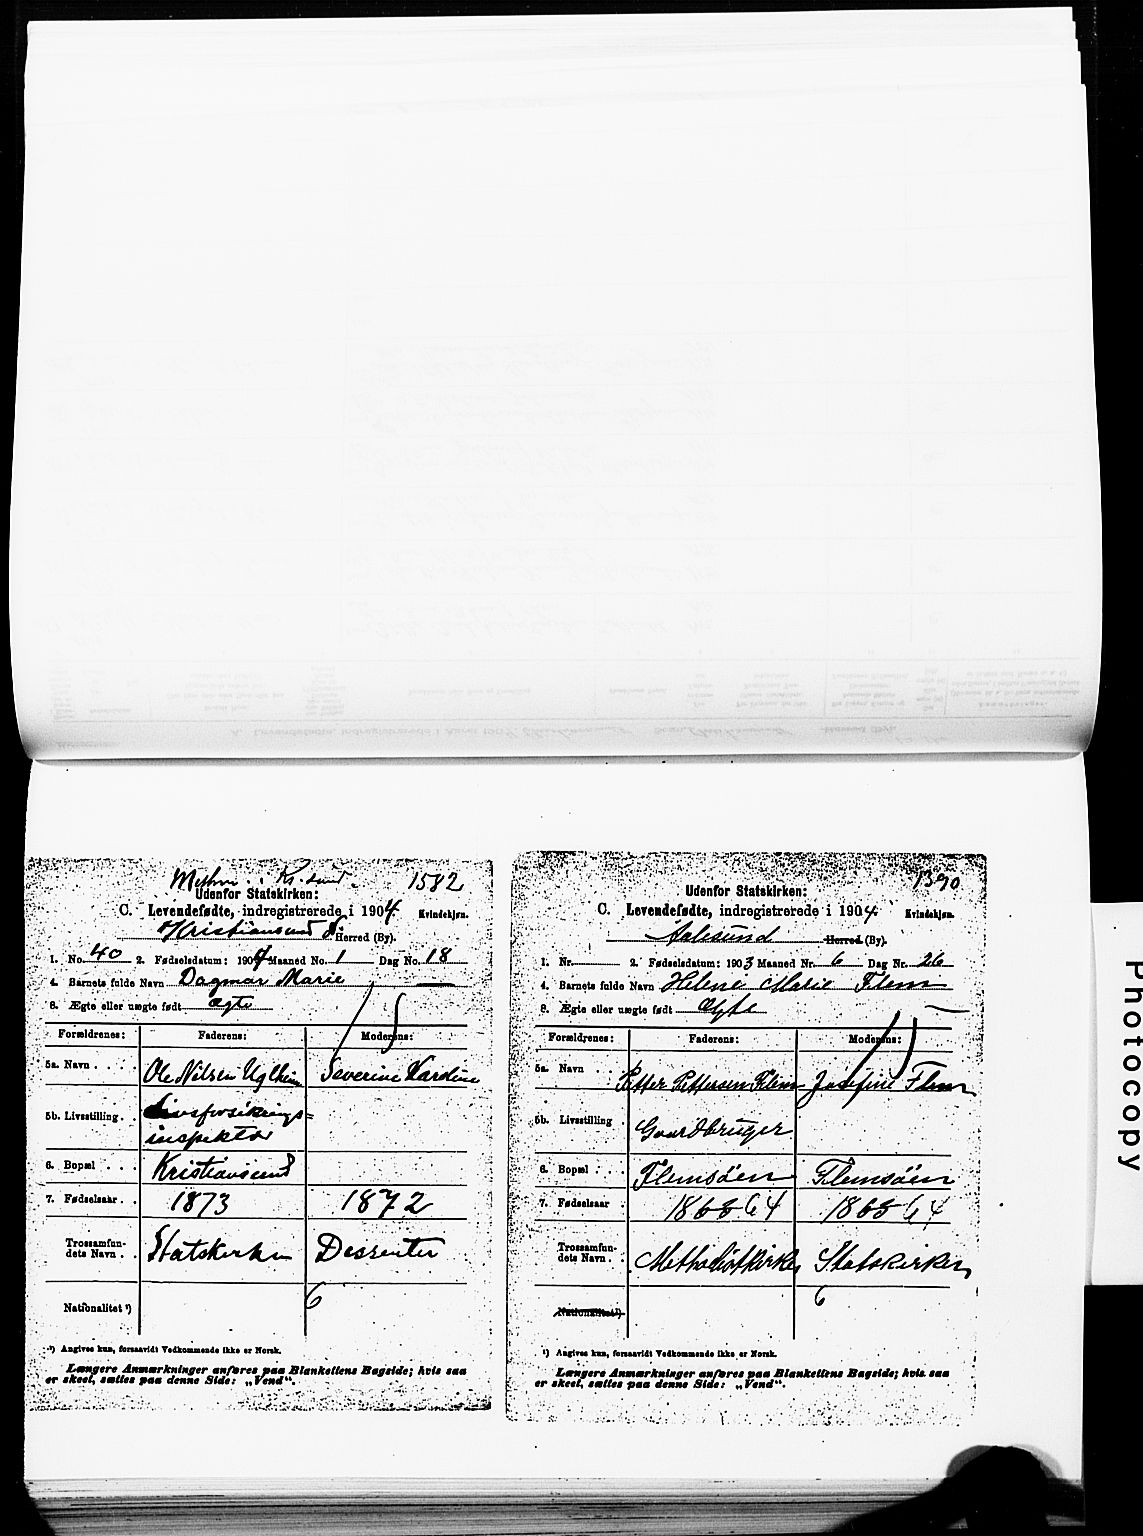 1582
Udenfor Statskirken:
C. Levendefødte, indregistrerede i 1904. Kvindekjøn.
Kristianssund N Herred (By).
1. No. 40 2. Fødselsdatum: 1904 Maaned No. 1 Dag No. 18
4. Barnets fulde Navn Dagmar Marie
8. Ægte eller uægte født ægte
Forældrenes: Faderens: Moderens:
5a. Navn . . . . Ole Nilsen Uglheim Severine Kardine
5b. Livsstilling. . Livsforsikrings=
inspektør
6. Bopæl . . . Kristianssund
7. Fødselsaar. . 1873 1872
Trossamfun-
dets Navn . . Statskirken Dessenter
Nationalitet ¹) 6
¹) Angives kun, forsaavidt Vedkommende ikke er Norsk.
Længere Anmærkninger anføres paa Blankettens Bagside; hvis saa
er skeet, sættes paa denne Side: „Vend".
1390
Udenfor Statskirken:
C. Levendefødte, indregistrerede i 1904. Kvindekjøn.
Aalesund Herred (By).
1. Nr. 2. Fødselsdatum: 1903 Maaned Nr. 6 Dag Nr. 26
4. Barnets fulde Navn Helene Marie Flem
8. Ægte eller uægte født Ægte
Forældrenes: Faderens: Moderens:
5a. Navn . . . Petter Pettersen Flem Josefine Flem
5b. Livsstilling . Gaardbruger
6. Bopæl . . . Flemsöen Flemsöen
7. Fødselsaar . 1865 64 1865 64
Trossamfun-
dets Navn . . Methodistkirken Statskirken
Nationalitet ¹) 6
¹) Angives kun, forsaavidt Vedkommende ikke er Norsk.
Længere Anmærkninger anføres paa Blankettens Bagside; hvis saa
er skeet, sættes paa denne Side: „Vend".
Photocopy